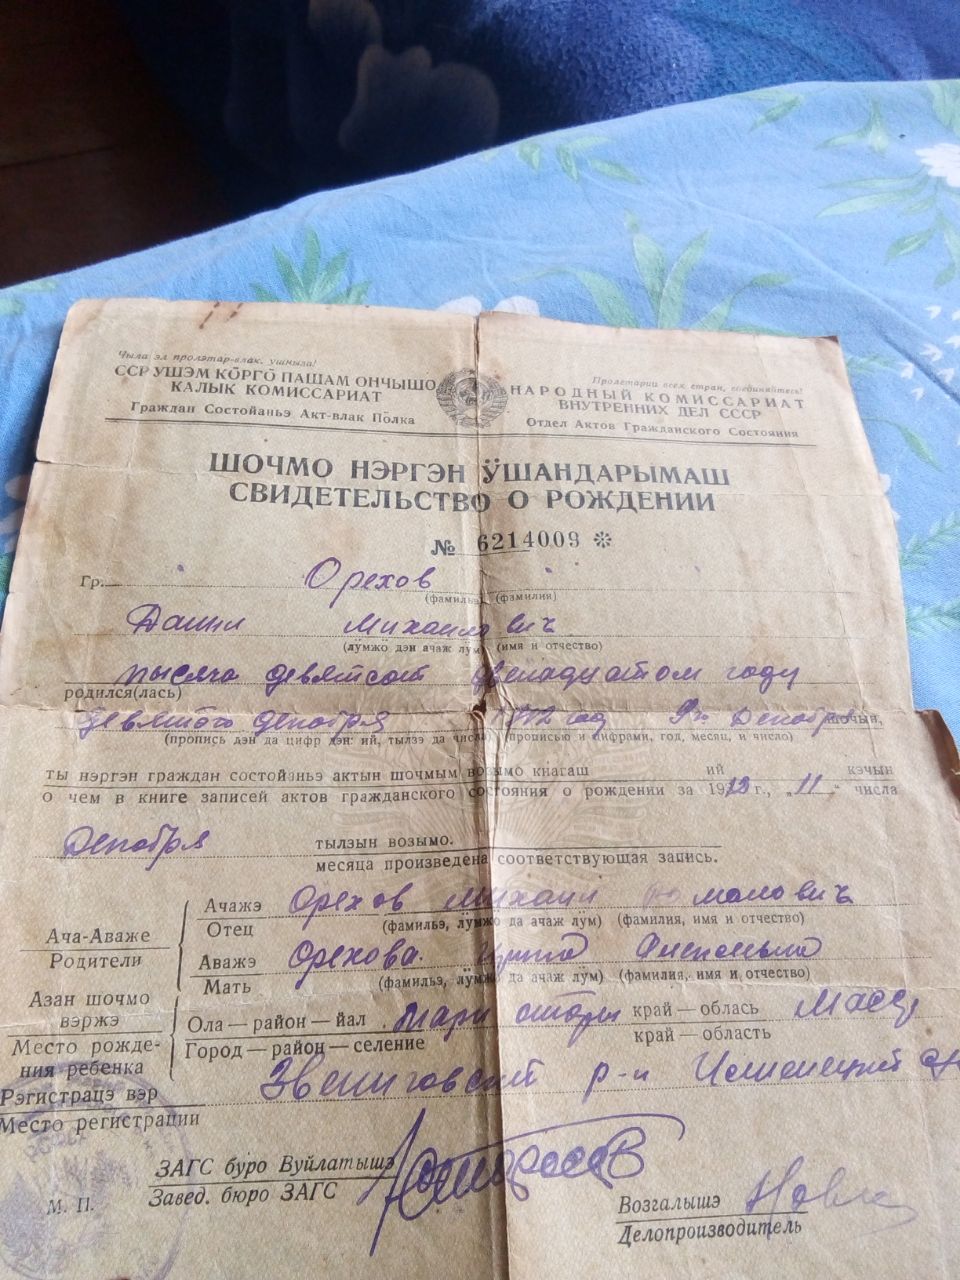 Чыла эл пролэтар-влак, ушныза!
ССР УШЭМ КӦРГӦ ПАШАМ ОНЧЫШО
КАЛЫК КОМИССАРИАТ
Граждан Состойаньэ Акт-влак Пӧлка
Пролетарии всех стран, соединяйтесь!
НАРОДНЫЙ КОМИССАРИАТ
ВНУТРЕННИХ ДЕЛ СССР
Отдел Актов Гражданского Состояния
ШОЧМО НЭРГЭН ӰШАНДАРЫМАШ
СВИДЕТЕЛЬСТВО О РОЖДЕНИИ
№ 6214009
Гр. Орехов
(фамильэ) (фамилия)
Михаилович
(лӱмжӧ дэн ачаж лӱм) (имя и отчество)
тысяча девятсот двенадцатом году
родился(лась)
девятого декабря 1912 год 9го Декабря шочын,
(пропись дэн да цифр дэн: ий, тылзэ да числа) (прописью и цифрами, год, месяц, и число)
ты нэргэн граждан состойаньэ актын шочмым возымо кнагаш ий кэчын
о чем в книге записей актов гражданского состояния о рождении за 1912 г., „11“ числа
Декабря
тылзын возымо.
месяца произведена соответствующая запись.
Ача-Аваже
Родители
Ачажэ Орехов Михаил
Отец (фамильэ, лӱмжӧ да ачаж лӱм) (фамилия, имя и отчество)
Аважэ Орехова
Мать (фамильэ, лӱмжӧ да ачаж лӱм) (фамилия, имя и отчество)
Азан шочмо
вэржэ
Место рожде-
ния ребенка
Ола—район—йал край—обласъ
Город—район—селение край—область
Рэгистрацэ вэр Звениговский р-н
Место регистрации
ЗАГС буро Вуйлатышэ
Завед. бюро ЗАГС
М. П.
Возгалышэ
Делопроизводитель